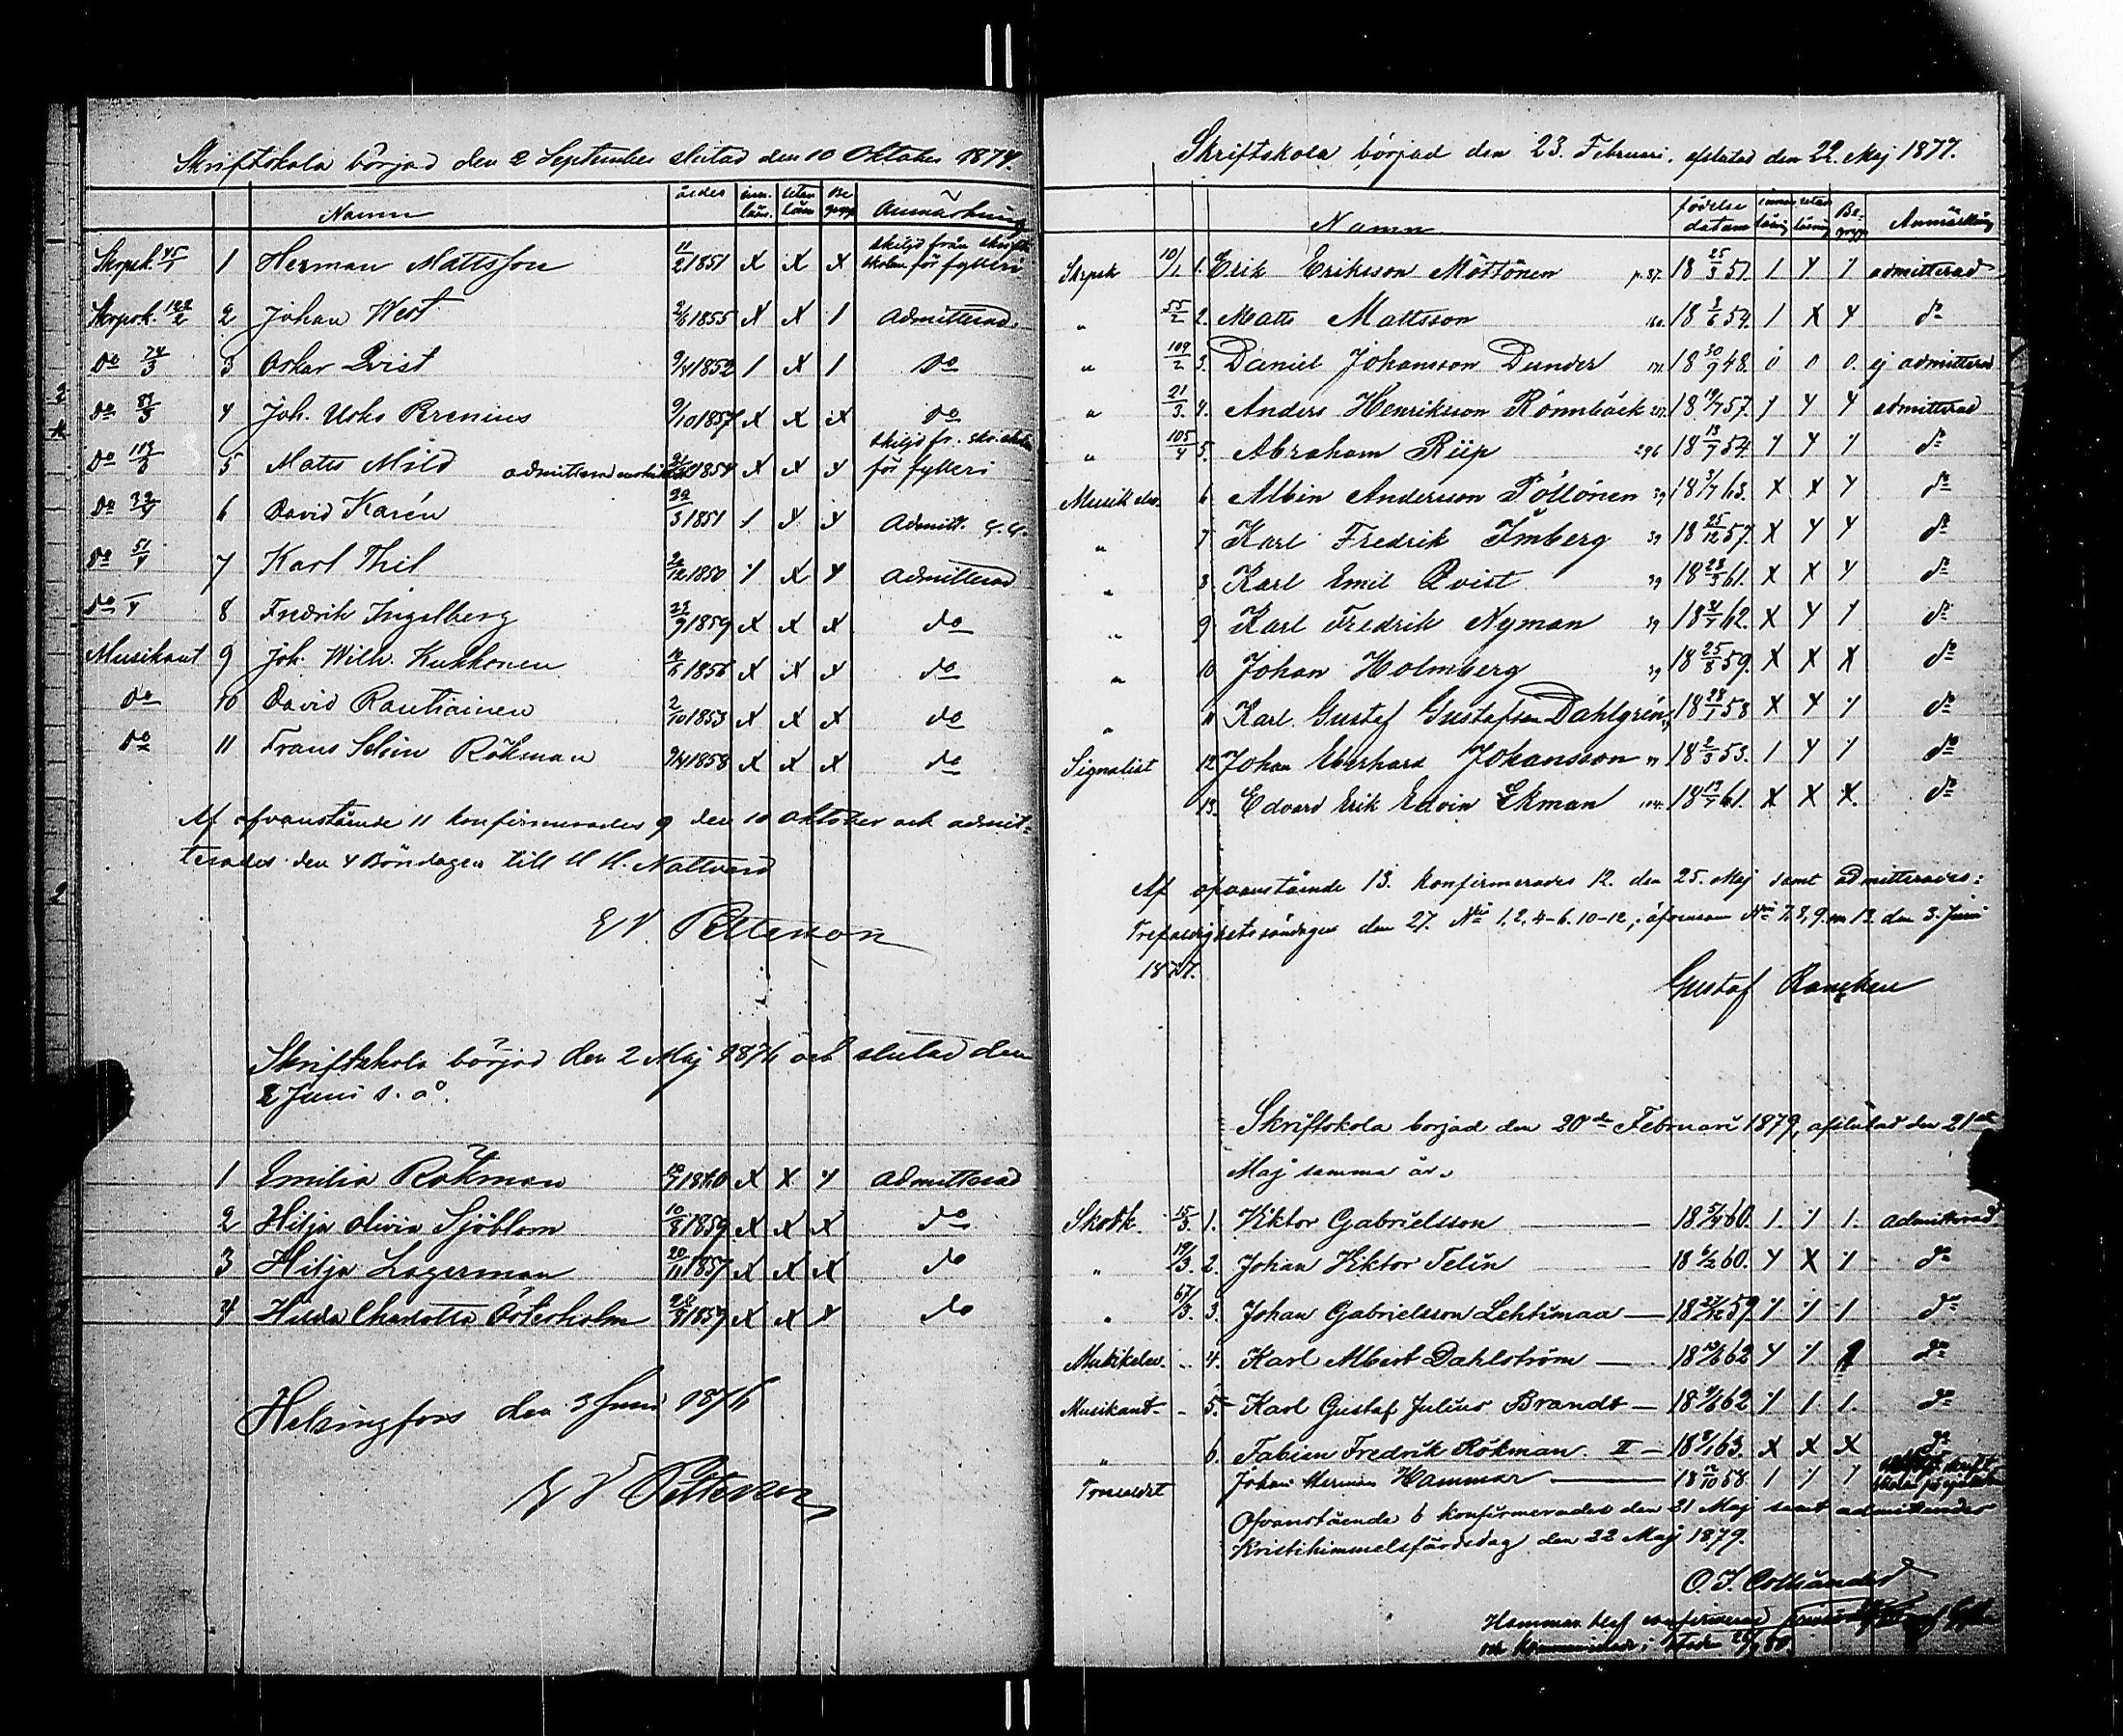 Skriftskola började den 2 September slutad den 10 Oktober 1874.
Namn ålder innan läsn. utan läsn Be grepp Anmärkning
Skrpsk. 45/1 1 Herman Mattsson 11/2 1851 X X X skiljd från skrift skolan för fylleri
Skrpsk. 2 Johan West 1855 X X 1 Admitterad.
do 74/3 3 Oskar Qvist 1852 1 X 1 do
do 4 Joh. Usko Brenius 9/10 1857 X X X do
do 5 Matts Mild admitterad 1854 X X Y skiljd fr. skr. skolan för fylleri
do 6 David Karén 1851 1 Y Y Admitt.
do 51/4 7 Karl Thil 1850 Y X Y Admitterad
do 8 Fredrik Ingelberg 23/9 1859 X X X do
Musikant 9 Joh. Wilh. Kukkonen 1856 X X Y do
do 10 David Rautiainen 2/10 1853 X X X do
do 11 Frans Selim Rökman 1858 X X X do
Af ofvanstående 11 konfirmerades 9 den 10 Oktober och admit-
terades den 4 Böndagen till H. H. Nattvard
Petterson
Skriftskola börjad den 2 Maj 1876 och slutad den
2 Juni s. å.
1 Emilia Rökman 1860 X X Y Admitterad
2 Hilja Olivia Sjöblom 10/8 1859 X X X do
3 Hilja Lagerman 20/11 1857 X X X do
4 Hilda Charlotta Österholm 1859 X X X do
Helsingfors den 3 Juni 1876
Petterson
Skriftskola börjad den 23. Februari, afslutad den 22. Maj 1877.
Namn födelse datum innan läsnig utan läsnig Be- grepp Anmärkning
Skrpsk 10/1 1. Erik Eriksson Möttönen p. 37. 18 25/3 51. 1 Y 1 admitterad
" 55/2 2. Matts Mattsson 18 54. 1 X Y do
" 109/2 3. Daniel Johansson Dunder 171. 18 30/9 48. 0 0 0. ej admitterad
" 21/3 4. Anders Henriksson Rönnbäck 217. 18 57. Y Y Y admitterad
" 105/4 5. Abraham Riip 296 18 54. Y Y 1 do
Musik elev. 6 Albin Andersson Pöllönen 39 18 63. X X Y do
" 7 Karl Fredrik Imberg 39 18 25/12 57. X Y Y do
" 8. Karl Emil Qvist 39 18 61. X X Y do
" 9 Karl Fredrik Nyman 39 18 62. X Y 1 do
" 10 Johan Holmberg 39 18 25/8 59. X X X do
" 11 Karl Gustaf Gustafson Dahlgrén, 18 58 X Y 1 do
Signalist 12 Johan Eberhard Johansson 18 53. 1 Y 1 do
13. Edvard Erik Edvin Ekman 18 61. X X X. do
Af ofvanstående 13. konfirmerades 12. den 25. Maj samt admitterades:
Trefaldighetssöndagen den 27. No 1, 2, 4-6. 10-12; äfvensom No 7, 8, 9. 13. den 3. Juni
1877.
Gustaf Rancken
Skriftskola börjad den 20de Februari 1879, afslutad den 21sta
Maj samma år.
Skotk. 15/3 1. Viktor Gabrielsson 18 60. 1. 1 1. Admitterad
" 19/3. 2. Johan Viktor Telin 18 60. Y X 1 do
" 67/3. 3. Johan Gabrielsson Lehtimaa 18 27/12 59. 1 1 1 do
Musikelev. 4. Karl Albert Dahlström 18 62 Y 1 1 do
Musikant 5. Karl Gustaf Julius Brandt 18 62. 1 1 1. do
" 6. Fabian Fredrik Rökman. II 18 63. X X X do
Johan Herman Hammar 18 12/10 58. 1 1 1
Ofvanstående 6 konfirmerades den 21 Maj samt admitterades
Kristihimmelsfärdsdag den 22 Maj 1879.
Hammar blef konfirmerad